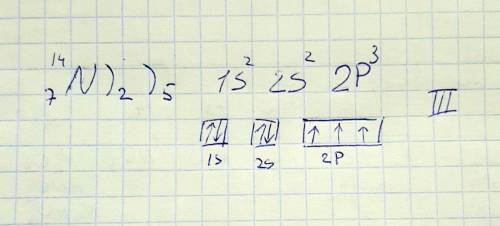 ¹⁴₇N)₂)₅ 1s² 2s² 2p³
III
↑↓ ↑↓ ↑ ↑ ↑
1s 2s 2p